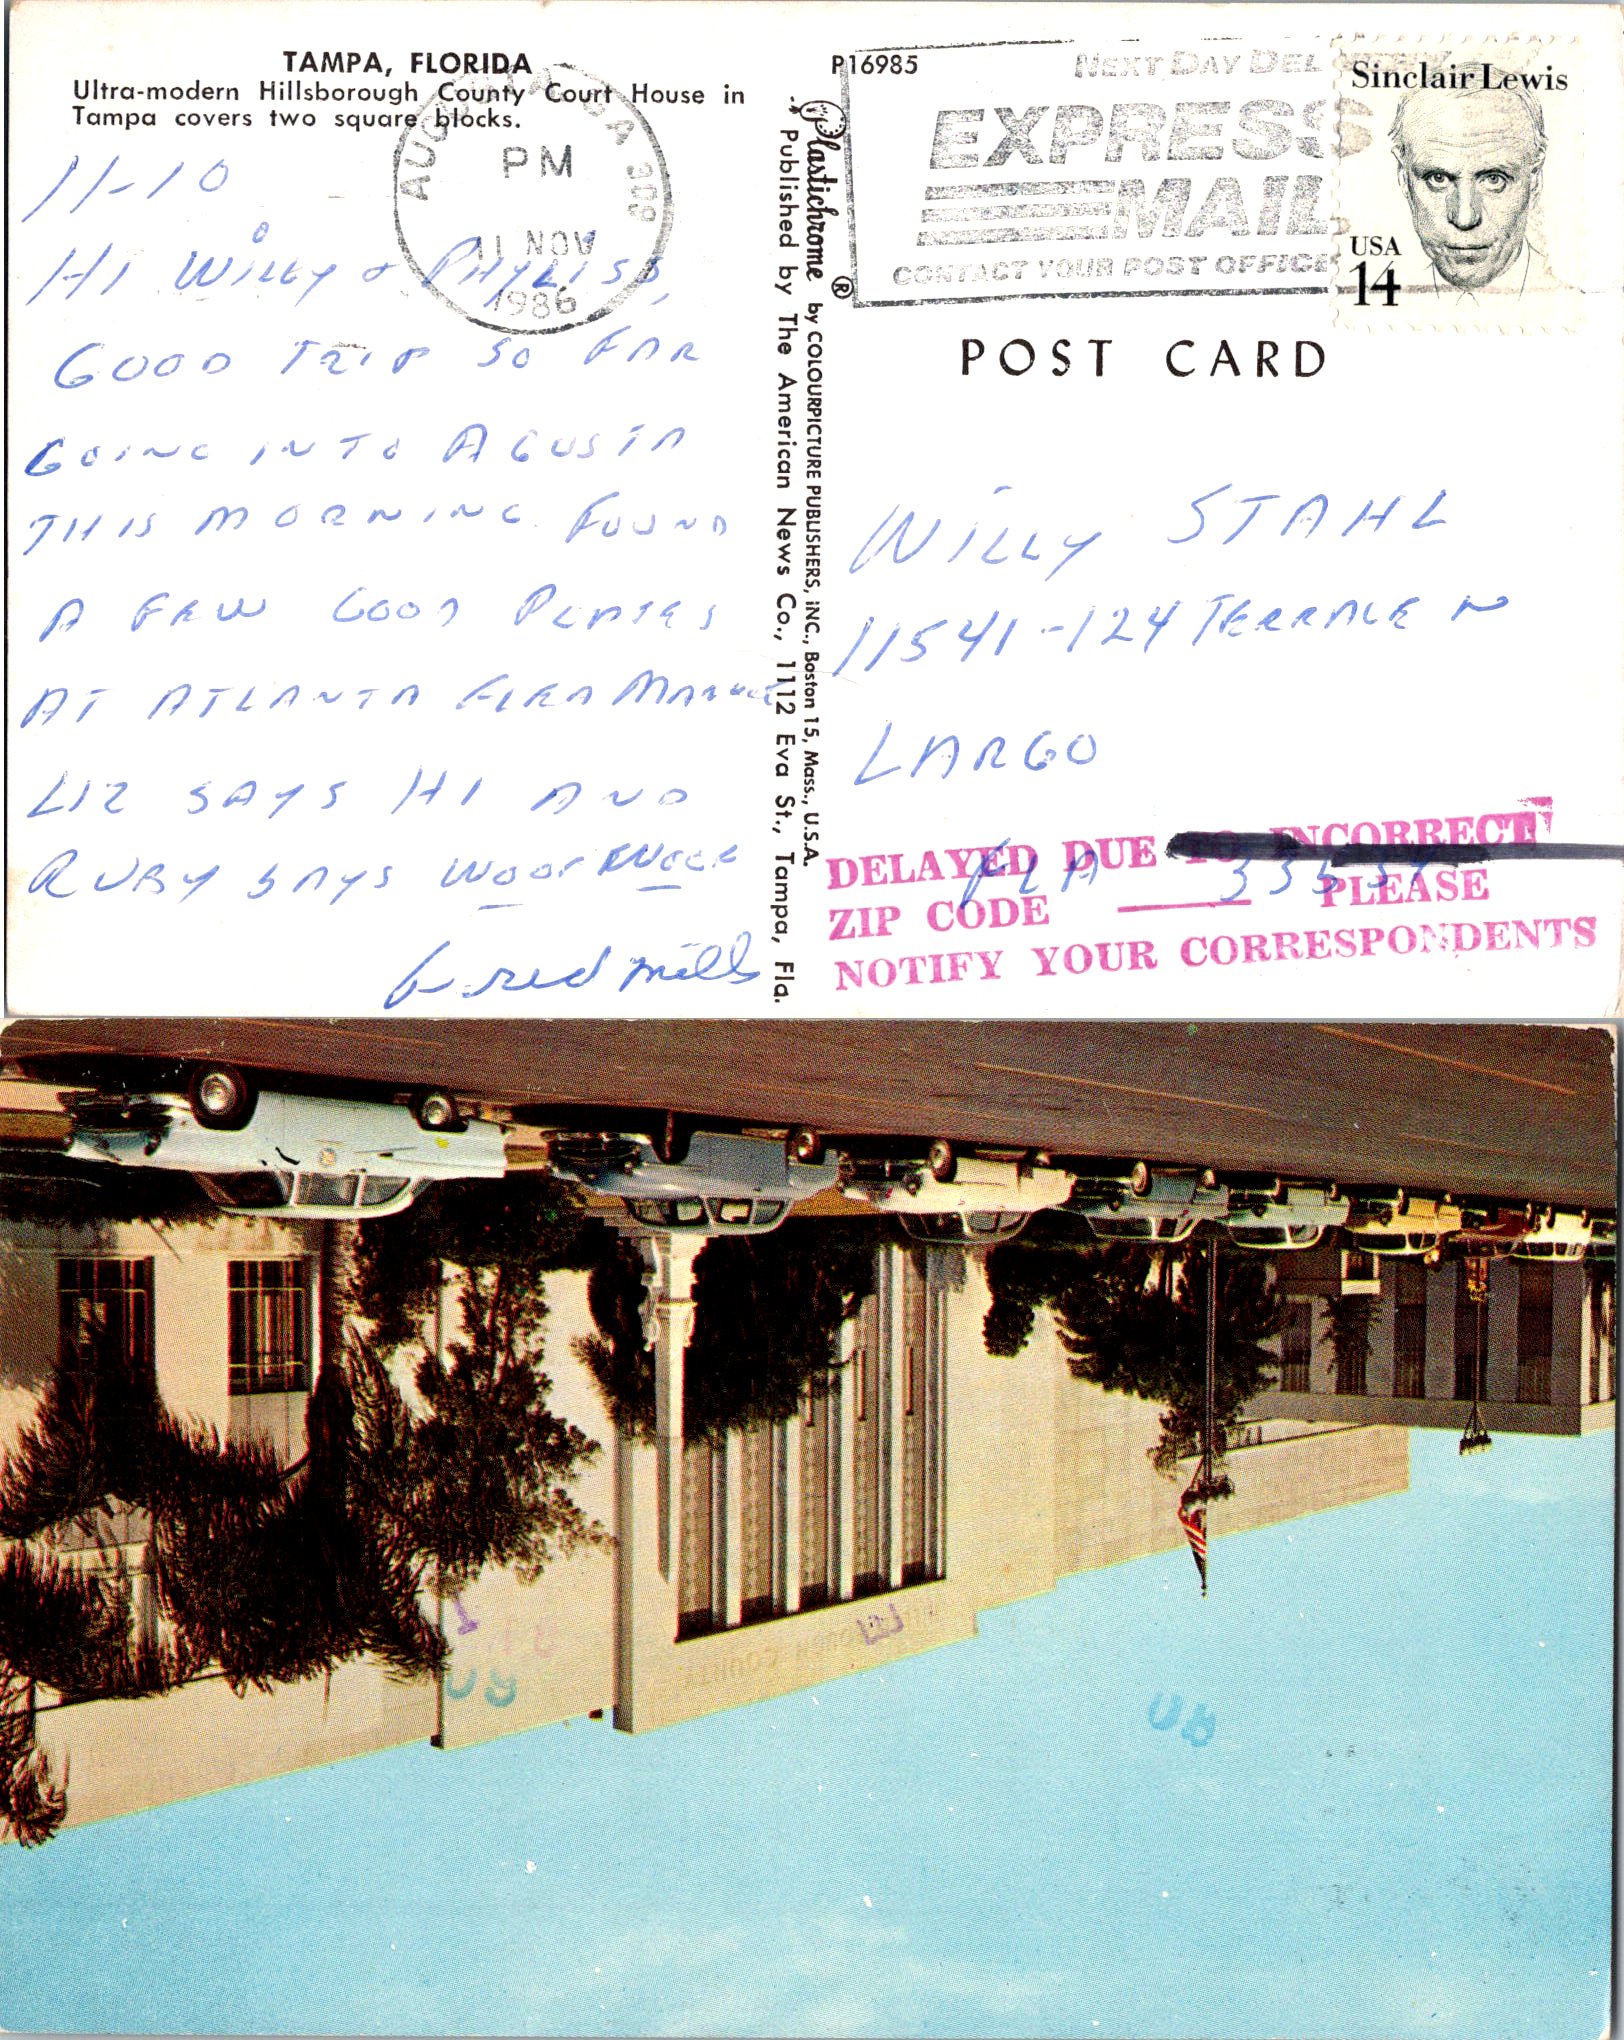 TAMPA, FLORIDA
Ultra-modern Hillsborough County Court House in
Tampa covers two square blocks.
P16985
AUGUSTA GA 309
PM
11 NOV
1986
NEXT DAY DEL
EXPRESS
MAIL
CONTACT YOUR POST OFFICE
Sinclair Lewis
USA
14
11-10
HI WILLY & PHYLISS,
GOOD TRIP SO FAR
GOING INTO AGUSTA
THIS MORNING FOUND
A FEW GOOD PEASES
AT ATLANTA FLEA MARKET
LIZ SAYS HI AND
RUBY SAYS WOOF WOOF
Fred Mills
Plastichrome ® by COLOURPICTURE PUBLISHERS, INC., Boston 15, Mass., U.S.A.
Published by The American News Co., 1112 Eva St., Tampa, Fla.
POST CARD
WILLY STAHL
11541-124 TERRACE N
LARGO
FLA
DELAYED DUE TO INCORRECT
ZIP CODE PLEASE
NOTIFY YOUR CORRESPONDENTS